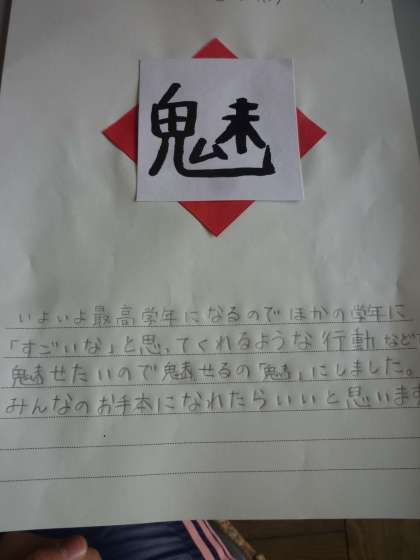 魅
いよいよ最高学年になるのでほかの学年に
「すごいな」と思ってくれるような行動など
魅せたいので魅せるの「魅」にしました。
みんなのお手本になれたらいいと思います